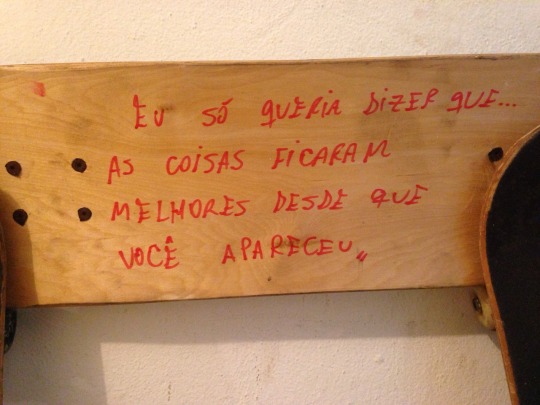 EU SÓ QUERIA DIZER QUE...
AS COISAS FICARAM
MELHORES DESDE QUE
VOCÊ APARECEU,,